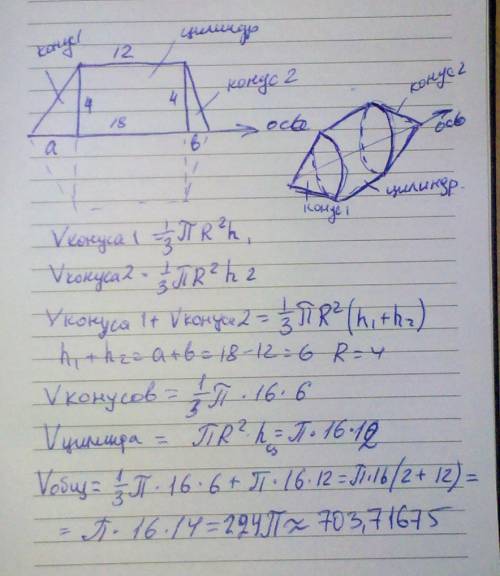 конус1 12 цилиндр
4 4 конус 2
18 ось
a b
конус 2
ось
цилиндр
конус1
Vконуса 1 = 1/3 ПR²h₁
Vконуса2 = 1/3 ПR²h2
Vконуса 1 + Vконуса2 = 1/3 ПR²(h₁+h₂)
h₁+h₂ = a+b = 18-12 = 6 R=4
Vконусов = 1/3 П · 16 · 6
Vцилиндра = ПR² · hц = П · 16 · 12
Vобщ = 1/3 П · 16 · 6 + П · 16 · 12 = П·16(2+12) =
= П · 16 · 14 = 224П ≈ 703,71675